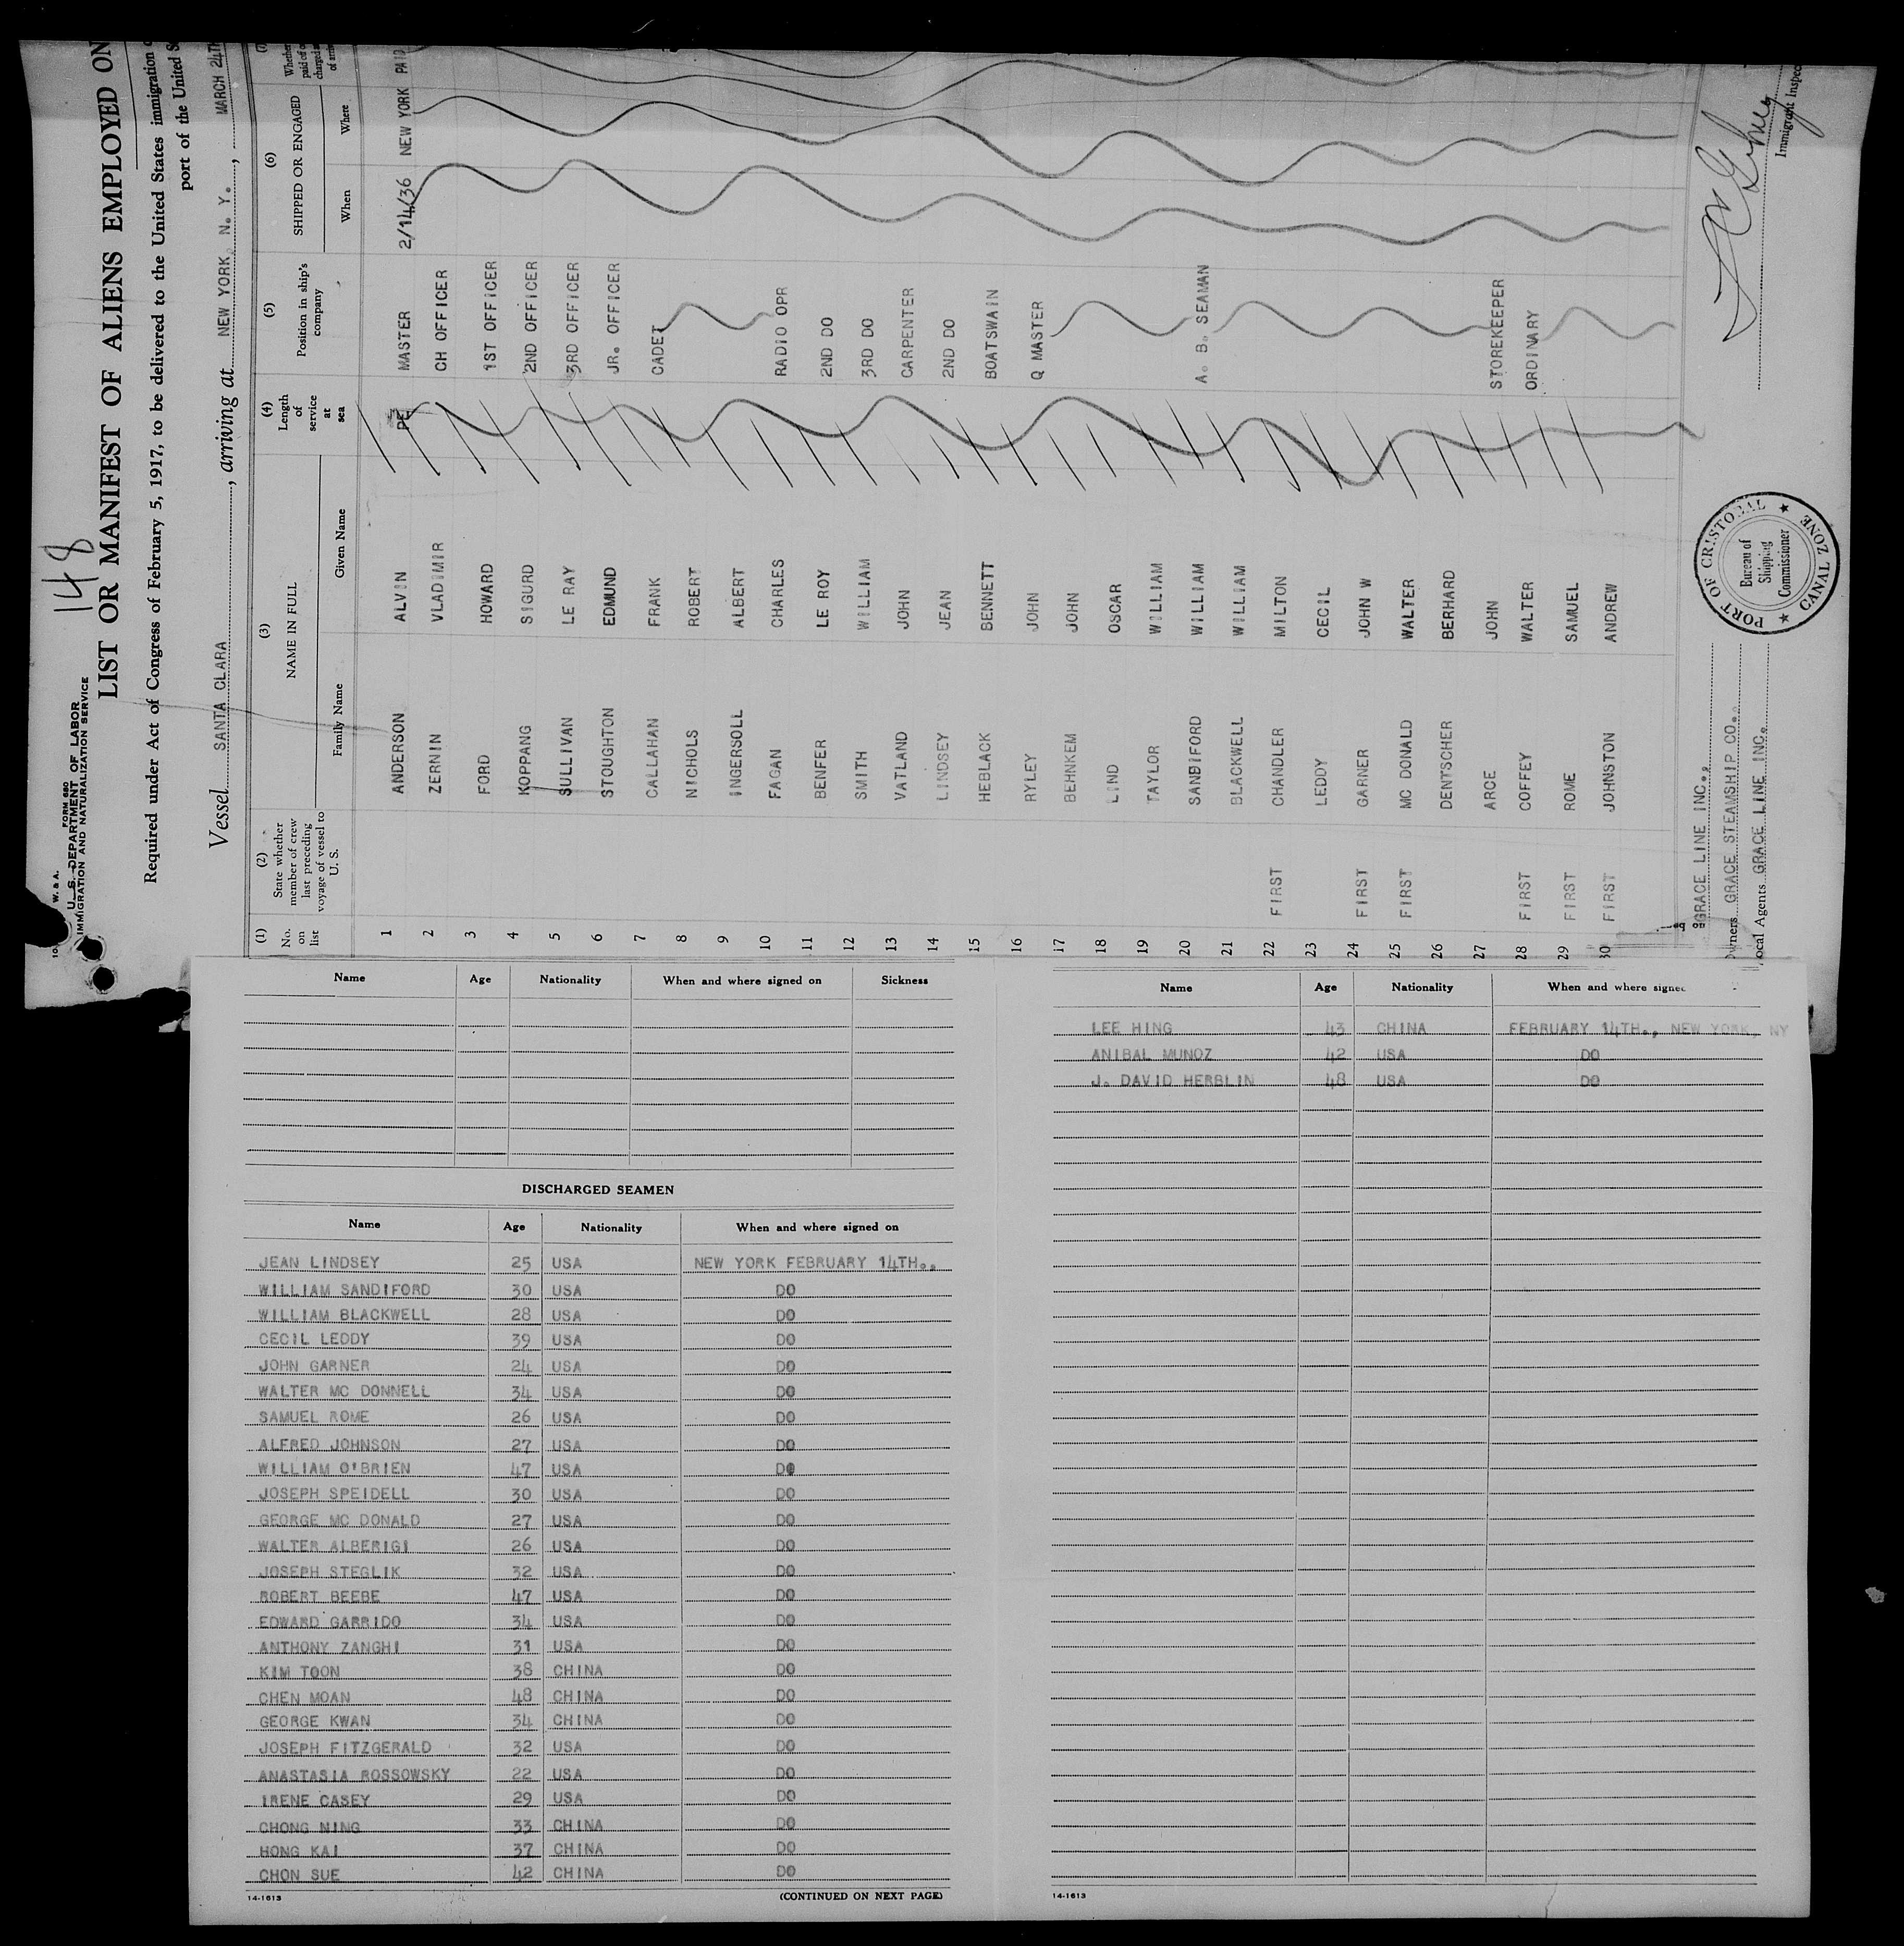 148
10 W. & A.
FORM 680
U. S. DEPARTMENT OF LABOR
IMMIGRATION AND NATURALIZATION SERVICE
LIST OR MANIFEST OF ALIENS EMPLOYED ON
Required under Act of Congress of February 5, 1917, to be delivered to the United States immigration
port of the United S
Vessel SANTA CLARA, arriving at NEW YORK, N. Y., MARCH 24TH
(1) (2) (3) (4) (5) (6)
No. on list
State whether member of crew last preceding voyage of vessel to U. S.
NAME IN FULL
Family Name Given Name
Length of service at sea
Position in ship's company
SHIPPED OR ENGAGED
When Where
1 ANDERSON ALVIN MASTER 2/14/36 NEW YORK PAID
2 ZERNIN VLADIMIR CH OFFICER
3 FORD HOWARD 1ST OFFICER
4 KOPPANG SIGURD 2ND OFFICER
5 SULLIVAN LE RAY 3RD OFFICER
6 STOUGHTON EDMUND JR. OFFICER
7 CALLAHAN FRANK CADET
8 NICHOLS ROBERT
9 INGERSOLL ALBERT
10 FAGAN CHARLES RADIO OPR
11 BENFER LE ROY 2ND DO
12 SMITH WILLIAM 3RD DO
13 VATLAND JOHN CARPENTER
14 LINDSEY JEAN 2ND DO
15 HEBLACK BENNETT BOATSWAIN
16 RYLEY JOHN Q MASTER
17 BEHNKEM JOHN
18 LIND OSCAR
19 TAYLOR WILLIAM
20 SANDIFORD WILLIAM A. B. SEAMAN
21 BLACKWELL WILLIAM
22 FIRST CHANDLER MILTON
23 LEDDY CECIL
24 FIRST GARNER JOHN W
25 FIRST MC DONALD WALTER
26 DENTSCHER BERHARD
27 ARCE JOHN STOREKEEPER
28 FIRST COFFEY WALTER ORDINARY
29 FIRST ROME SAMUEL
30 FIRST JOHNSTON ANDREW
GRACE LINE INC.,
Owners GRACE STEAMSHIP CO.
Local Agents GRACE LINE INC.
PORT OF CRISTOBAL
Bureau of
Shipping
Commissioner
CANAL ZONE
Immigrant Inspec
Name Age Nationality When and where signed on Sickness
DISCHARGED SEAMEN
Name Age Nationality When and where signed on
JEAN LINDSEY 25 USA NEW YORK FEBRUARY 14TH.,
WILLIAM SANDIFORD 30 USA DO
WILLIAM BLACKWELL 28 USA DO
CECIL LEDDY 39 USA DO
JOHN GARNER 24 USA DO
WALTER MC DONNELL 34 USA DO
SAMUEL ROME 26 USA DO
ALFRED JOHNSON 27 USA DO
WILLIAM O'BRIEN 47 USA DO
JOSEPH SPEIDELL 30 USA DO
GEORGE MC DONALD 27 USA DO
WALTER ALBERIGI 26 USA DO
JOSEPH STEGLIK 32 USA DO
ROBERT BEEBE 47 USA DO
EDWARD GARRIDO 34 USA DO
ANTHONY ZANGHI 31 USA DO
KIM TOON 38 CHINA DO
CHEN MOAN 48 CHINA DO
GEORGE KWAN 34 CHINA DO
JOSEPH FITZGERALD 32 USA DO
ANASTASIA ROSSOWSKY 22 USA DO
IRENE CASEY 29 USA DO
CHONG NING 33 CHINA DO
HONG KAI 37 CHINA DO
CHON SUE 42 CHINA DO
14-1613 (CONTINUED ON NEXT PAGE)
Name Age Nationality When and where signed
LEE HING 43 CHINA FEBRUARY 14TH., NEW YORK, NY
ANIBAL MUNOZ 42 USA DO
J. DAVID HERBLIN 48 USA DO
14-1613